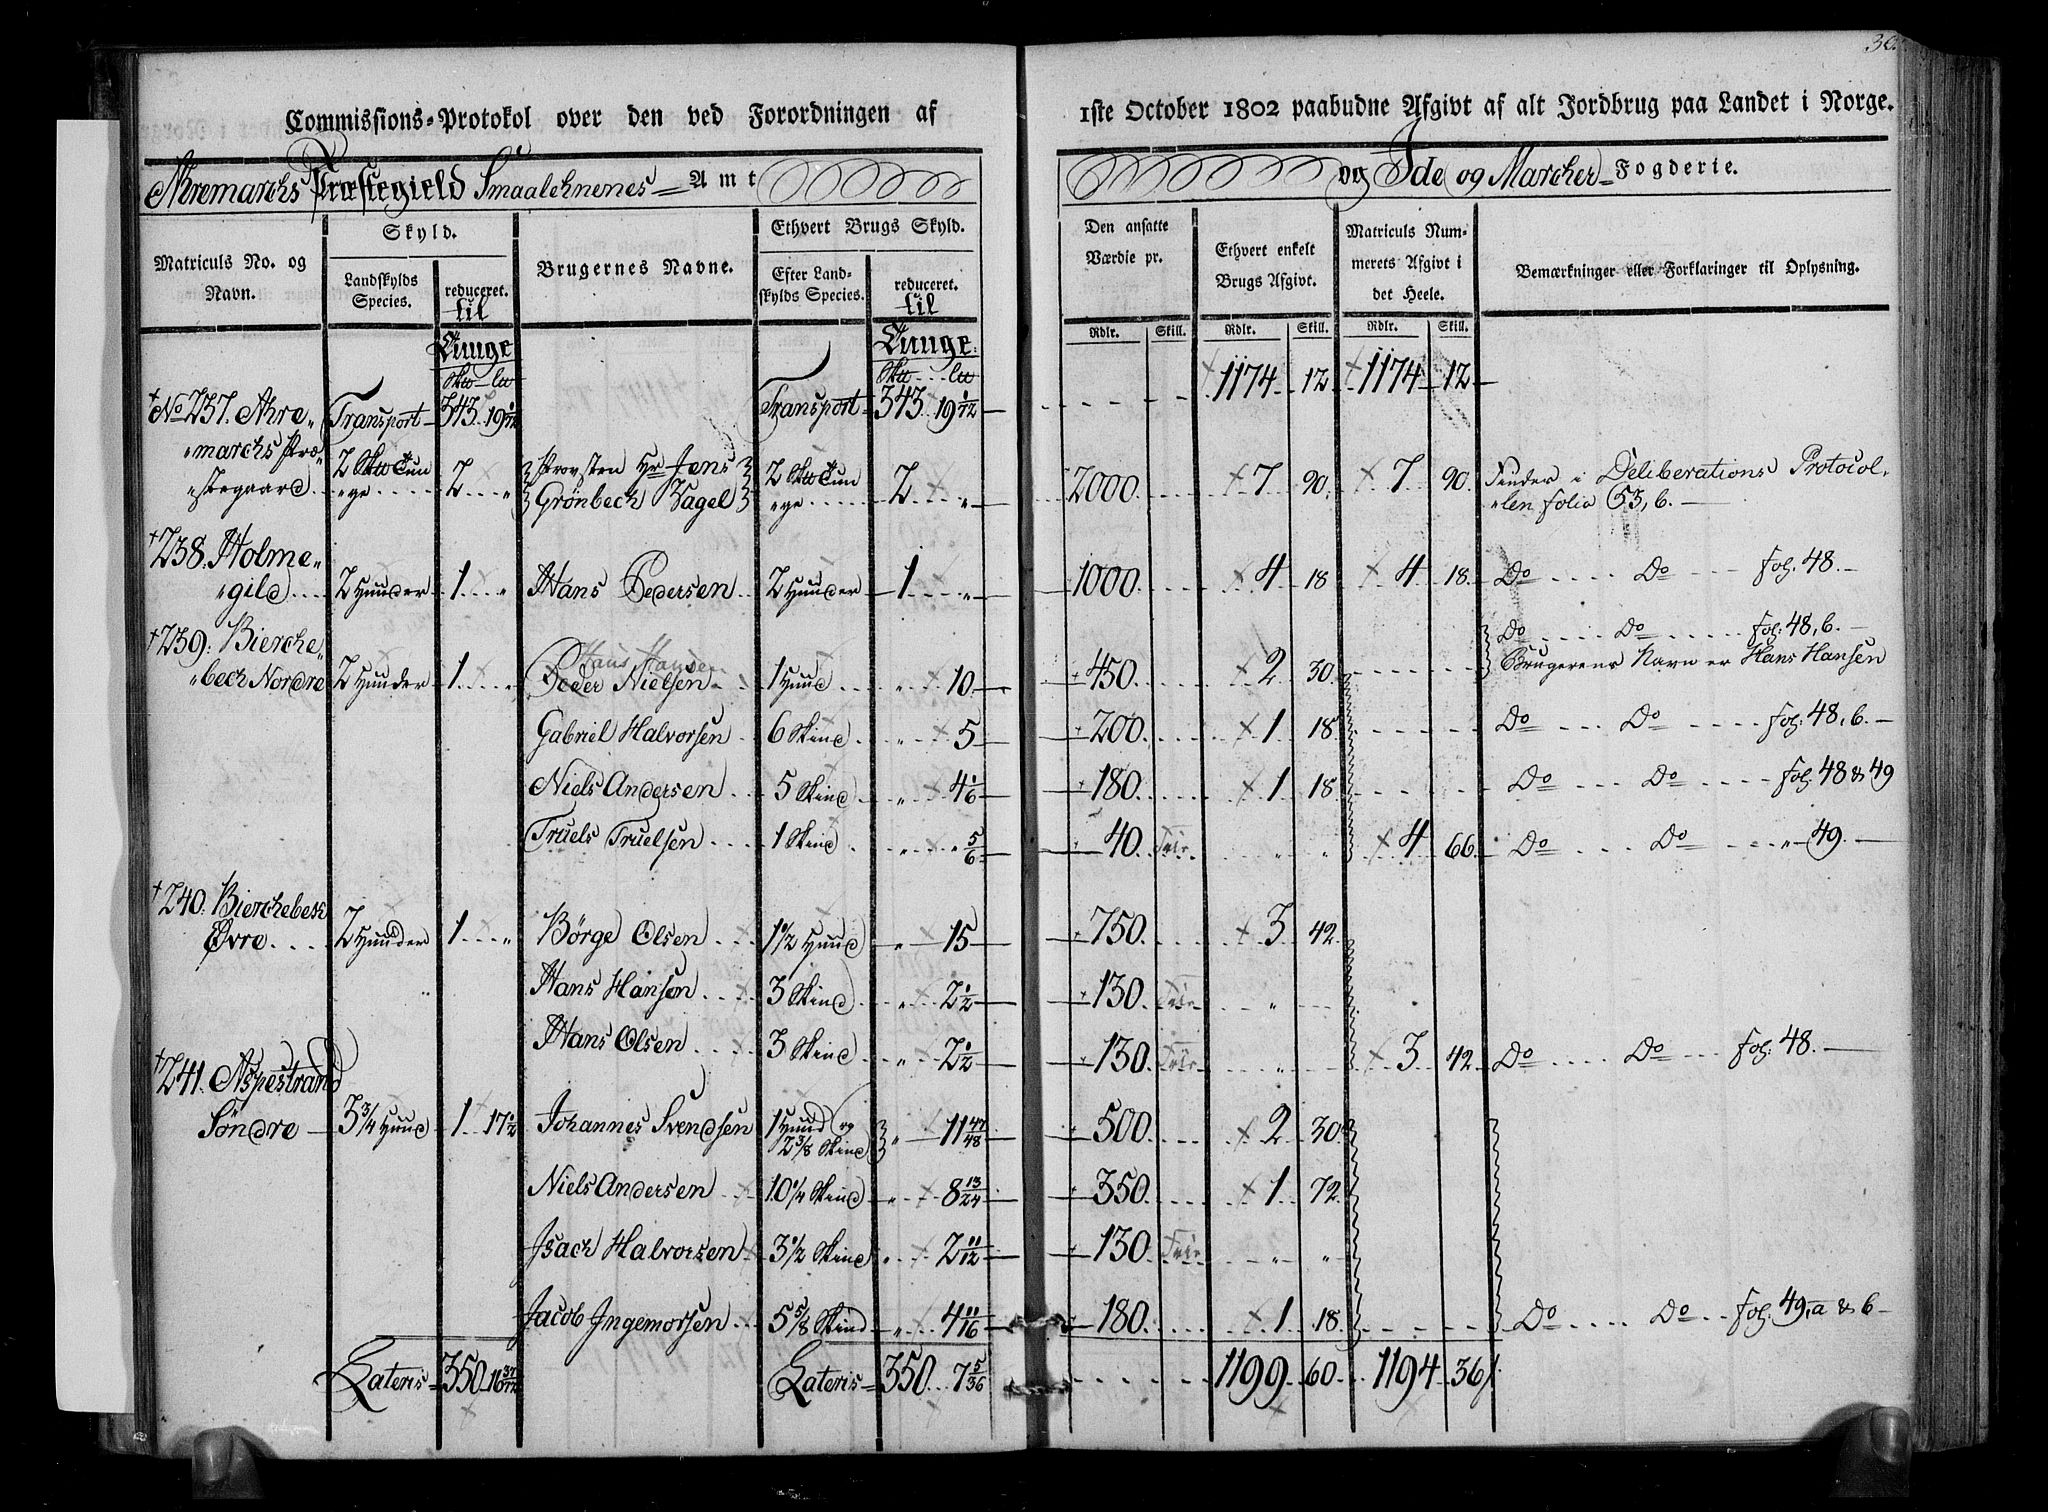 30.
Commissions-Protokol over den ved Forordningen af 1ste October 1802 paabudne Afgivt af alt Jordbrug paa Landet i Norge.
Aremarchs Præstegield Smaalehnenes Amt og Ide og Marcher Fogderie.
Matriculs No. og Navn.
Skyld.
Landskylds Species.
reduceret. til
Brugernes Navne.
Ethvert Brugs Skyld.
Efter Landskylds Species.
reduceret. til
Den ansatte Værdie pr.
Ethvert enkelt Brugs Afgivt.
Matriculs Nummerets Afgivt i det Heele.
Bemærkninger eller Forklaringer til Oplysning.
Rdlr. Skill. Rdlr. Skill. Rdlr. Skill.
Tunge Tunge
Transport 343 19 1/12 Transport 343 19 1/12 1174 12 1174 12
No 237. Are-
marchs Præ-
stegaard 2 Tun
ge 2 " Provsten Hr Jens
Grönbech Vagel 2 Tun
ge 2 " 2000 7 90 7 90 Finder i Deliberations Protocol-
len folio 53, b.
238. Holme-
gild 2 Huuder 1 " Hans Pedersen 2 Huuder 1 " 1000 4 18 4 18 Do Do fol: 48.
239. Bierche-
bech Nordre 2 Huuder 1 " Hans Hansen
Peder Nielsen 1 Huud " 10 450 2 30 Do Do fol: 48, b.
Brugerens Navn er Hans Hansen
Gabriel Halvorsen 6 Skind " 5 200 1 18 Do Do fol: 48, b.
Niels Andersen 5 Skind " 4 1/6 180 1 18 Do Do fol: 48 & 49
Truels Truelsen 1 Skind " " 5/6 40 Frir " " 4 66 Do Do " 49.
240. Bierchebech
Øvre 2 Huuder 1 " Börge Olsen 1 1/2 Huud " 15 750 3 42
Hans Hansen 3 Skind " 2 1/2 130 Frir "
Hans Olsen 3 Skind " 2 1/2 130 Frir " 3 42 Do Do fol: 48.
241. Aspestrand
Söndre 3 3/4 Huud 1 17 1/2 Johannes Svendsen 1 Huud og
2 3/8 Skind " 11 47/48 500 2 30
Niels Andersen 10 1/4 Skind " 8 13/24 350 1 72
Isach Halvorsen 3 1/2 Skind " 2 11/12 130 Frir " "
Jacob Ingemorsen 5 5/8 Skind " 4 11/16 180 1 18 Do Do fol: 49, a & b
Lateris 350 Lateris 350 7 5/36 1199 60 1194 36